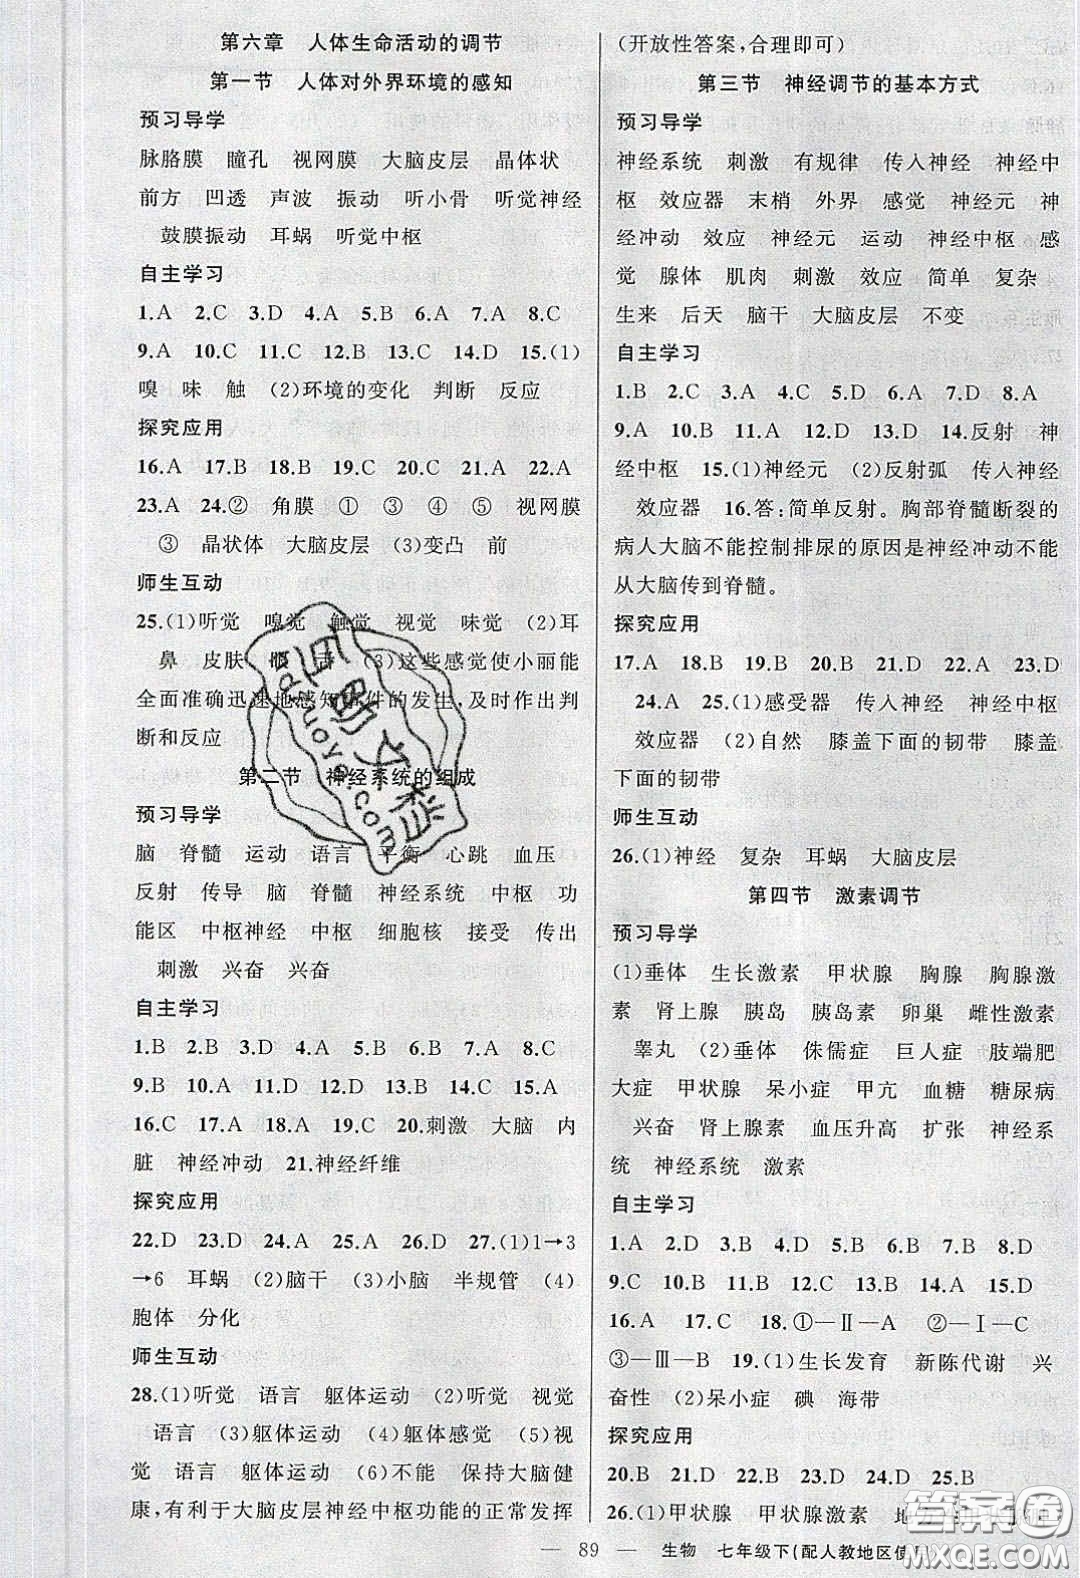 第六章 人体生命活动的调节
第一节 人体对外界环境的感知
预习导学
脉胳膜 瞳孔 视网膜 大脑皮层 晶体状
前方 凹透 声波 振动 听小骨 听觉神经
鼓膜振动 耳蜗 听觉中枢
自主学习
1.A 2.C 3.D 4.A 5.B 6.A 7.A 8.C
9.A 10.C 11.C 12.B 13.C 14.D 15.(1)
嗅 味 触 (2)环境的变化 判断 反应
探究应用
16.A 17.B 18.B 19.C 20.C 21.A 22.A
23.A 24.② 角膜 ① ③ ④ ⑤ 视网膜
③ 晶状体 大脑皮层 (3)变凸 前
师生互动
25.(1)听觉 嗅觉 触觉 视觉 味觉 (2)耳
鼻 皮肤 眼 舌 (3)这些感觉使小丽能
全面准确迅速地感知事件的发生,及时作出判
断和反应
第二节 神经系统的组成
预习导学
脑 脊髓 运动 语言 平衡 心跳 血压
反射 传导 脑 脊髓 神经系统 中枢 功
能区 中枢神经 中枢 细胞核 接受 传出
刺激 兴奋 兴奋
自主学习
1.B 2.B 3.D 4.A 5.C 6.B 7.A 8.C
9.B 10.A 11.D 12.D 13.C 14.C 15.A
16.C 17.A 18.C 19.C 20.刺激 大脑 内
脏 神经冲动 21.神经纤维
探究应用
22.D 23.D 24.A 25.A 26.D 27.(1)1→3
→6 耳蜗 (2)脑干 (3)小脑 半规管 (4)
胞体 分化
师生互动
28.(1)听觉 语言 躯体运动 (2)听觉 视觉
语言 (3)躯体运动 (4)躯体感觉 (5)视
觉 语言 躯体运动 (6)不能 保持大脑健
康,有利于大脑皮层神经中枢功能的正常发挥
(开放性答案,合理即可)
第三节 神经调节的基本方式
预习导学
神经系统 刺激 有规律 传人神经 神经中
枢 效应器 末梢 外界 感觉 神经元 神
经冲动 效应 神经元 运动 神经中枢 感
觉 腺体 肌肉 刺激 效应 简单 复杂
生来 后天 脑干 大脑皮层 不变
自主学习
1.B 2.C 3.A 4.C 5.D 6.A 7.D 8.A
9.A 10.B 11.A 12.D 13.D 14.反射 神
经中枢 15.(1)神经元 (2)反射弧 传人神经
效应器 16.答:简单反射。胸部脊髓断裂的
病人大脑不能控制排尿的原因是神经冲动不能
从大脑传到脊髓。
探究应用
17.A 18.B 19.B 20.B 21.D 22.A 23.D
24.A 25.(1)感受器 传人神经 神经中枢
效应器 (2)自然 膝盖下面的韧带 膝盖
下面的韧带
师生互动
26.(1)神经 复杂 耳蜗 大脑皮层
第四节 激素调节
预习导学
(1)垂体 生长激素 甲状腺 胸腺 胸腺激
素 肾上腺 胰岛 胰岛素 卵巢 雌性激素
睾丸 (2)垂体 侏儒症 巨人症 肢端肥
大症 甲状腺 呆小症 甲亢 血糖 糖尿病
兴奋 肾上腺素 血压升高 扩张 神经系
统 神经系统 激素
自主学习
1.A 2.D 3.B 4.A 5.B 6.B 7.B 8.D
9.C 10.B 11.B 12.B 13.B 14.A 15.D
16.A 17.C 18.①—Ⅱ—A ②—Ⅰ—C
③—Ⅲ—B 19.(1)生长发育 新陈代谢 兴
奋性 (2)呆小症 碘 海带
探究应用
20.B 21.A 22.D 23.D 24.D 25.B
26.(1)甲状腺 甲状腺激素
— 89 — 生物 七年级下(配人教地区使用)
答案圈
MXQE.COM